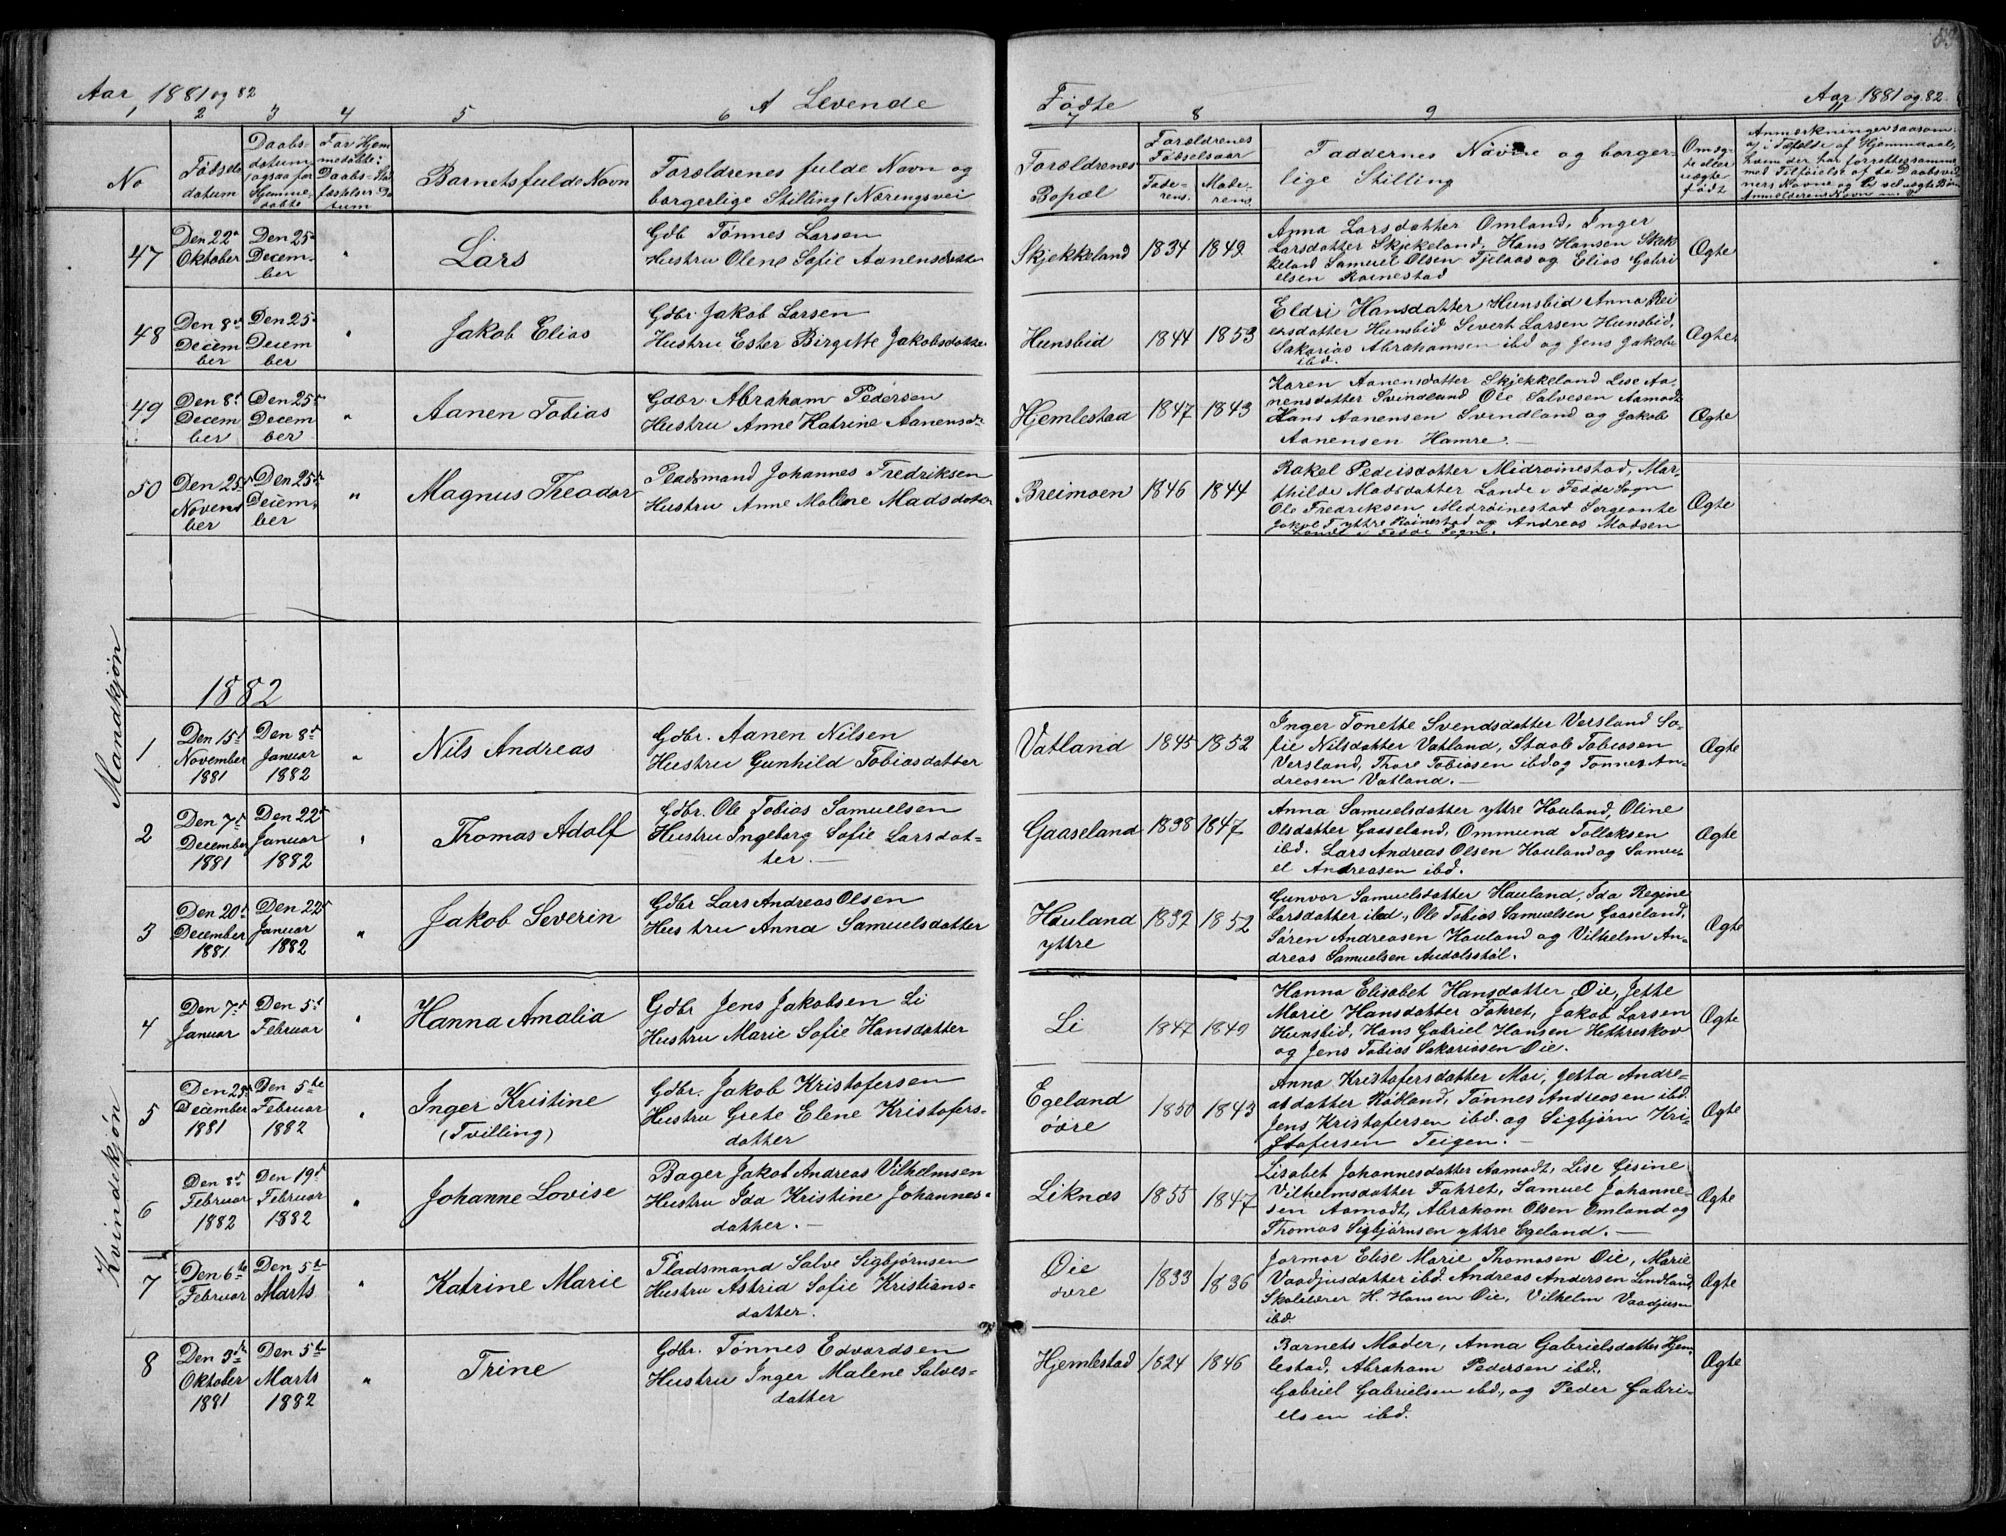 Aar 1881 og 82
A Levende
Fødte
Aar 1881 og 82.
53
1 2 3 4 5 6 7 8 9 11
No
Fødsels
datum
Daabs-
datum
(ogsaa for
Hjemme-
døbte
For Hjem
medøbte:
Daabs-Stad
fæstelses Da-
tum
Barnets fulde Navn
Forældrenes fulde Navn og
borgerlige Stilling (Næringsvei
Forældrenes
Bopæl
Forældrenes
Fødselsaar
Fade-
rens.
Mode-
rens.
Faddernes Navne og borger-
lige Stilling
Om æg-
te eller
uægte
født
Mandkjøn
47
Den 22de
Oktober
Den 25de
Decem-
ber
"
Lars
Gdb Tønnes Larsen
Hustru Olene Sofie Aanensdatter
Skjekkeland
1834
1849
Anna Larsdatter Omland, Inger
Larsdatter Skjekeland, Hans Hansen Skek
keland Samuel Olsen Tjelaas og Elias Gabri
elsen Røinestad
Ægte
48
Den 8de
Decem
ber
Den 25
Decem
ber
"
Jakob Elias
Gdbr. Jakob Larsen
Hustru Ester Birgitte Jakobsdatter
Hunsbid
1844
1853
Eldri Hansdatter Hunsbid Anna Rei
ersdatter Hunsbid Severt Larsen Hunsbid,
Sakarias Abrahamsen ibd og Jens Jakobs
ibd.
Ægte
49
Den 8de
Decem
ber
Den 25de
Decem
ber
"
Aanen Tobias
Gdbr. Abraham Pedersen
Hustru Anne Katrine Aanensd.
Hjemlestad
1847
1843
Karen Aanensdatter Skjekkeland Lise Aa-
nensdatter Svindland Ole Salvesen Aamodt
Hans Aanensen Svindland og Jakob
Aanensen Hamre. —
Ægte
50
Den 25de
Novem
ber
Den 25de
Decem-
ber
"
Magnus Theodor
Pladsmand Johannes Fredriksen
Hustru Anne Malene Madsdatter
Breimoen
1846
1844
Rakel Pedersdatter Midrøinestad, Mar
thilde Madsdatter Lande i Fedde Sogn
Ole Fredriksen Midrøinestad Sergeante
Jakob T. yttre Røinestad og Andreas Madsen
Lande i Fedde Sogn.
Ægte
1882
1
Den 15de
November
1881
Den 8de
Januar
1882
"
Nils Andreas
Gdbr. Aanen Nilsen
Hustru Gunhild Tobiasdatter
Vatland
1845
1852
Inger Tonette Svendsdatter Versland So-
fie Nilsdatter Vatland, Staale Tobiasen
Versland, Thore Tobiasen ibd og Tønnes An-
dreasen Vatland. —
Ægte
2
Den 7de
December
1881
Den 22de
Januar
1882
"
Thomas Adolf
Gdbr. Ole Tobias Samuelsen
Hustru Ingeborg Sofie Larsdat-
ter. —
Gaaseland
1838
1847
Anna Samuelsdatter yttre Hauland, Oline
Olsdatter Gaaseland, Ommund Tollaksen
ibd. Lars Andreas Olsen Hauland og Samu-
el Andreasen ibd.
Ægte
3
Den 20de
December
1881
Den 22de
Januar
1882
"
Jakob Severin
Gdbr Lars Andreas Olsen
Hustru Anna Samuelsdatter
Hauland
yttre
1832
1852
Gunvor Samuelsdatter Hauland, Ida Regine
Larsdatter ibd., Ole Tobias Samuelsen Gaaseland,
Søren Andreasen Hauland og Vilhelm An-
dreas Samuelsen Audalsstøl.
Ægte
Kvindekjøn
4
Den 7de
Januar
Den 5te
Februar
"
Hanna Amalia
Gdbr Jens Jakobsen Li
Hustru Marie Sofie Hansdatter
Li
1847
1849
Hanna Elisabet Hansdatter Øie, Jette
Marie Hansdatter Fahret, Jakob Larsen
Hunsbid, Hans Gabriel Hansen Hettreskov
og Jens Tobias Sakariasen Øie.
Ægte
5
December
1881
Den 5te
Februar
1882
"
Inger Kristine
(Tvilling)
Gdbr. Jakob Kristofersen
Hustru Grete Elene Kristofers-
datter
Egeland
øvre
1850
1843
Anna Kristofersdatter Moi, Jetta Andre-
asdatter Høiland, Tønnes Andreasen ibd.
Jens Kristofersen ibd. og Sigbjørn Kri-
stofersen Teigen. —
Ægte
6
Den 8de
Februar
1882
Den 19de
Februar
1882
"
Johanne Lovise
Bager Jakob Andreas Vilhelmsen
Hustru Ida Kristine Johannes-
datter. —
Liknæs
1855
1847
Lisabet Johannesdatter Aamodt, Lise Gisine
Vilhelmsdatter Fahret, Samuel Johanne-
sen Aamodt, Abraham Olsen Omland og
Thomas Sigbjørnsen yttre Egeland. —
Ægte
7
Den 6te
Februar
Den 5te
Marts
"
Katrine Marie
Pladsmand Salve Sigbjørnsen
Hustru Astrid Sofie Kristians-
datter.
Øie
øvre
1833
1836
Jormor Elise Marie Thomasen Øie, Marie
Vaadjusdatter ibd. Andreas Andersen Lindland,
Skolelærer H. Hansen Øie, Vilhelm Vaadjusen
ibd.
Ægte
8
Den 3de
Oktober
1881
Den 5te
Marts
1882
"
Trine
Gdbr. Tønnes Edvardsen
Hustru Inger Malene Salves-
datter
Hjemlestad
1824
1846
Barnets Moder, Anna Gabrielsdatter Hjem-
lestad, Abraham Pedersen ibd.
Gabriel Gabrielsen ibd., og Peder Gabri-
elsen ibd.
Ægte